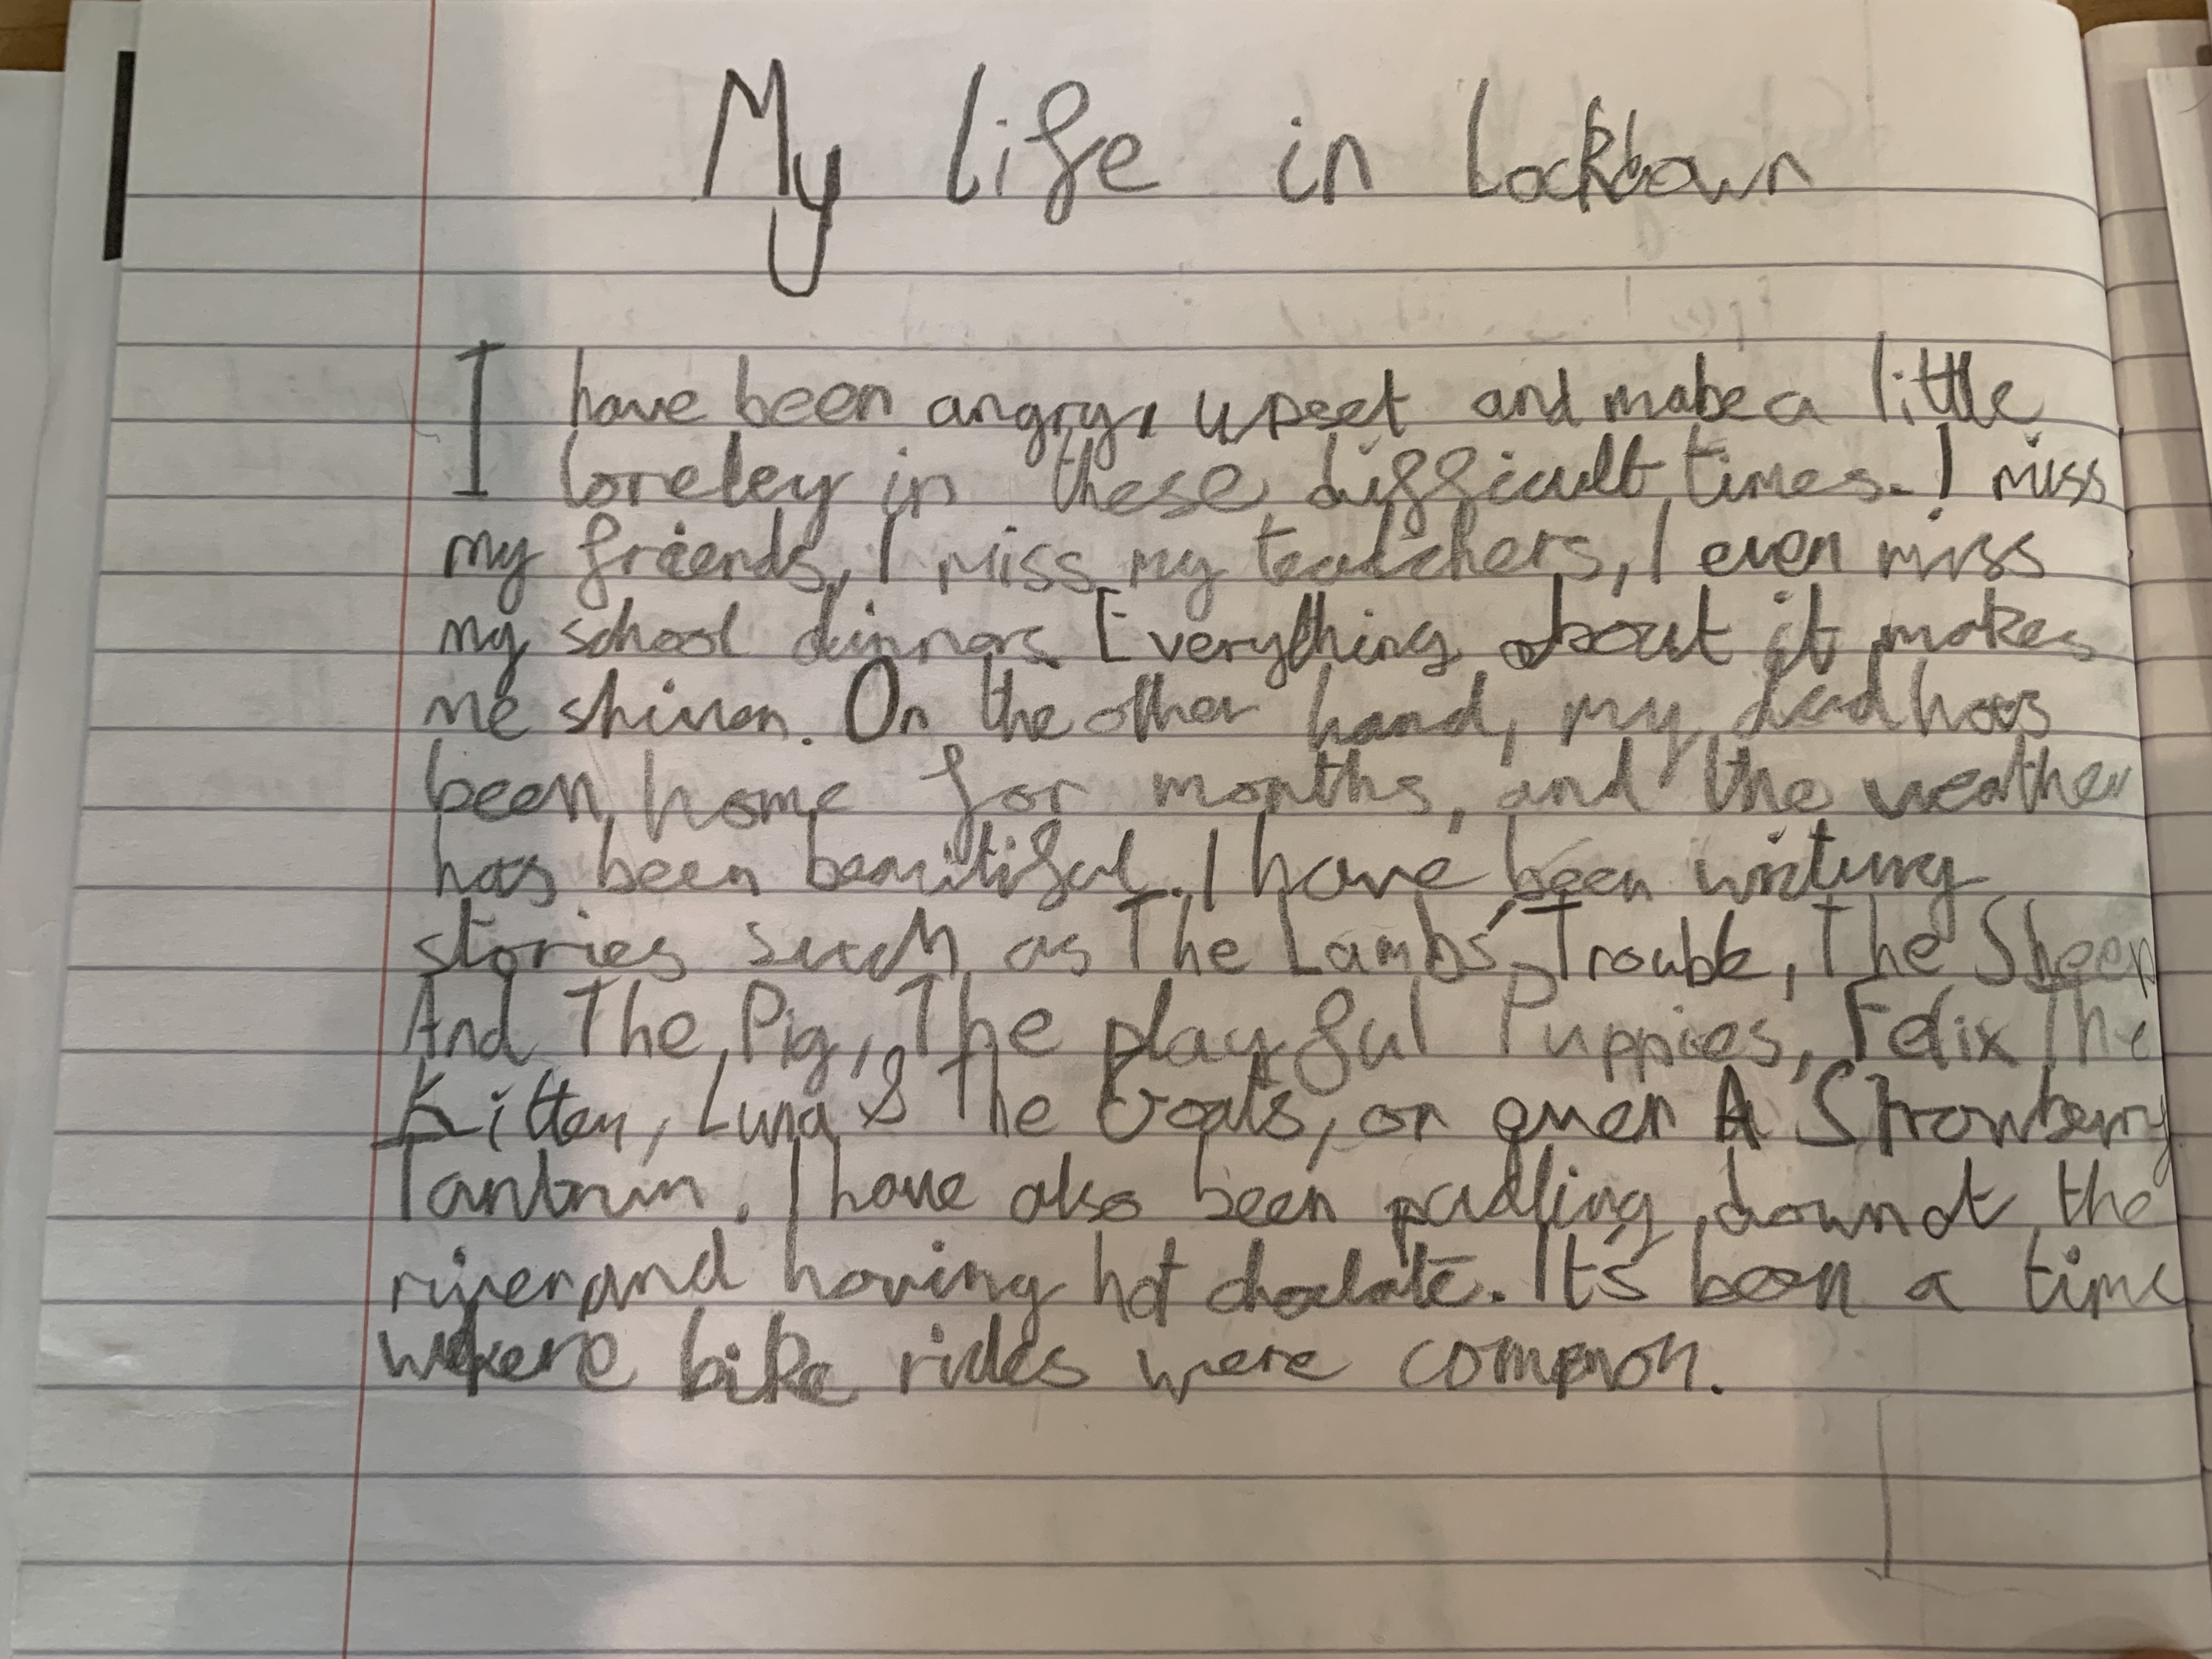 My life in Lockdown
I have been angry, upseet and mabe a little
loreley in these difficult times. I miss
my friends, I miss my teatchers, I even miss
my school dinners. Everything about it makes
me shiver. On the other hand, my dad has
been home for months, and the weather
has been beauitiful. I have been writing
stories such as The Lambs' Trouble, The Sheep
And The Pig, The playful Puppies, Felix The
Kitten, Luna & The Goats, or even A Strawberry
Tantrum. I have also been padling down at the
river and having hot choclate. It's been a time
where bike rides were common.